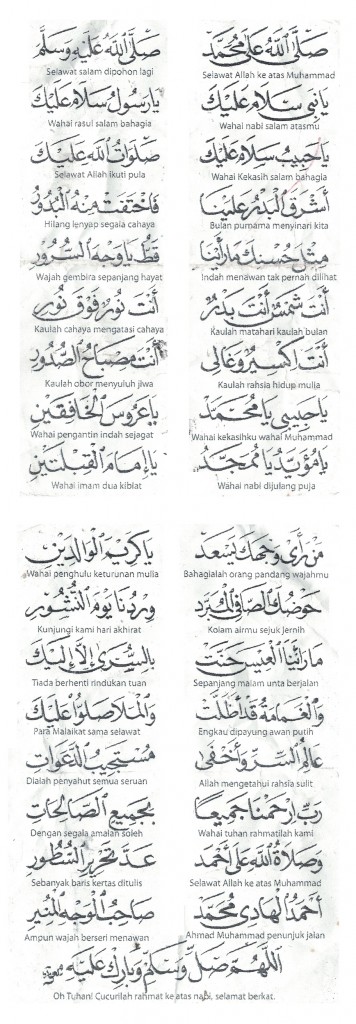 صَلَّى اللهُ عَلَى مُحَمَّد
Selawat Allah ke atas Muhammad
صَلَّى اللهُ عَلَيْهِ وَسَلَّمَ
Selawat salam dipohon lagi
يَا نَبِي سَلَامْ عَلَيْكَ
Wahai nabi salam atasmu
يَا رَسُولْ سَلَامْ عَلَيْكَ
Wahai rasul salam bahagia
يَا حَبِيبْ سَلَامْ عَلَيْكَ
Wahai Kekasih salam bahagia
صَلَوَاتُ اللهِ عَلَيْكَ
Selawat Allah ikuti pula
أَشْرَقَ الْبَدْرُ عَلَيْنَا
Bulan purnama menyinari kita
فَاخْتَفَتْ مِنْهُ الْبُدُورُ
Hilang lenyap segala cahaya
مِثْلَ حُسْنِكَ مَا رَأَيْنَا
Indah menawan tak pernah dilihat
قَطُّ يَا وَجْهَ السُّرُورِ
Wajah gembira sepanjang hayat
أَنْتَ شَمْسٌ أَنْتَ بَدْرٌ
Kaulah matahari kaulah bulan
أَنْتَ نُورٌ فَوْقَ نُورٍ
Kaulah cahaya mengatasi cahaya
أَنْتَ إِكْسِيرٌ وَغَالِي
Kaulah rahsia hidup mulia
أَنْتَ مِصْبَاحُ الصُّدُورِ
Kaulah obor menyuluh jiwa
يَا حَبِيبِي يَا مُحَمَّد
Wahai kekasihku wahai Muhammad
يَا عَرُوسَ الْخَافِقَيْنِ
Wahai pengantin indah sejagat
يَا مُؤَيَّدُ يَا مُمَجَّدُ
Wahai nabi dijulang puja
يَا إِمَامَ الْقِبْلَتَيْنِ
Wahai imam dua kiblat
مَنْ رَأَى وَجْهَكَ يَسْعَدْ
Bahagialah orang pandang wajahmu
يَا كَرِيمَ الْوَالِدَيْنِ
Wahai penghulu keturunan mulia
حَوْضُكَ الصَّافِي الْمُبَرَّدْ
Kolam airmu sejuk Jernih
وِرْدُنَا يَوْمَ النُّشُورِ
Kunjungi kami hari akhirat
مَا رَأَيْنَا الْعِيسَ حَنَّتْ
Sepanjang malam unta berjalan
بِالسُّرَى إِلَّا إِلَيْكَ
Tiada berhenti rindukan tuan
وَالْغَمَامَةُ قَدْ أَظَلَّتْ
Engkau dipayung awan putih
وَالْمَلَا صَلُّوا عَلَيْكَ
Para Malaikat sama selawat
عَالِمُ السِّرِّ وَأَخْفَى
Allah mengetahui rahsia sulit
مُسْتَجِيبُ الدَّعَوَاتِ
Dialah penyahut semua seruan
رَبِّ ارْحَمْنَا جَمِيعًا
Wahai tuhan rahmatilah kami
بِجَمِيعِ الصَّالِحَاتِ
Dengan segala amalan soleh
وَصَلَاةُ اللهِ عَلَى أَحْمَدْ
Selawat Allah ke atas Muhammad
عَدَّ تَحْرِيرِ السُّطُورِ
Sebanyak baris kertas ditulis
أَحْمَدُ الْهَادِي مُحَمَّدْ
Ahmad Muhammad penunjuk jalan
صَاحِبُ الْوَجْهِ الْمُنِيرِ
Ampun wajah berseri menawan
اللَّهُمَّ صَلِّ وَسَلِّمْ وَبَارِكْ عَلَيْهِ
Oh Tuhan! Cucurilah rahmat ke atas nabi, selamat berkat.